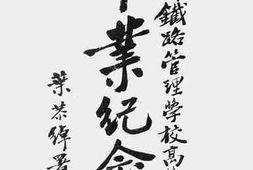 鐵路管理學校高
業紀念
葉恭綽署